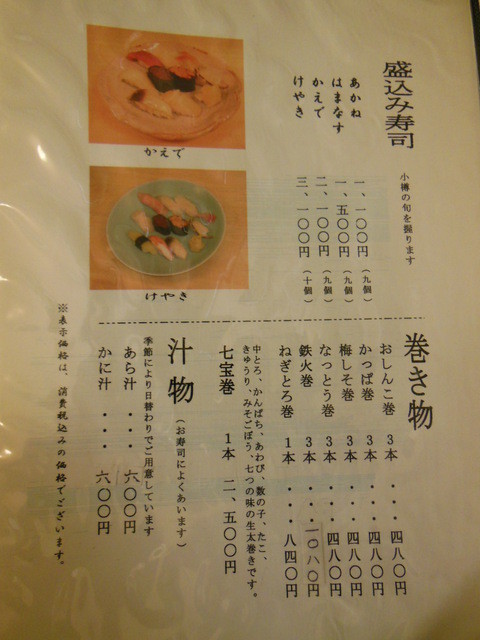 盛込み寿司
小樽の旬を握ります
あかね 一、一〇〇円（九個）
はまなす 一、五〇〇円（九個）
かえで 二、一〇〇円（九個）
けやき 三、一〇〇円（十個）
かえで
けやき
巻き物
おしんこ巻 3本 ・・・四八〇円
かっぱ巻 3本 ・・・四八〇円
梅しそ巻 3本 ・・・四八〇円
なっとう巻 3本 ・・・四八〇円
鉄火巻 3本 ・・・一〇八〇円
ねぎとろ巻 1本 ・・・八四〇円
中とろ、かんぱち、あわび、数の子、たこ、
きゅうり、みそごぼう、七つの味の生太巻きです。
七宝巻 1本 二、五〇〇円
汁物（お寿司によくあいます）
季節により日替わりでご用意しています
あら汁 ・・・ 六〇〇円
かに汁 ・・・ 六〇〇円
※表示価格は、消費税込みの価格でございます。